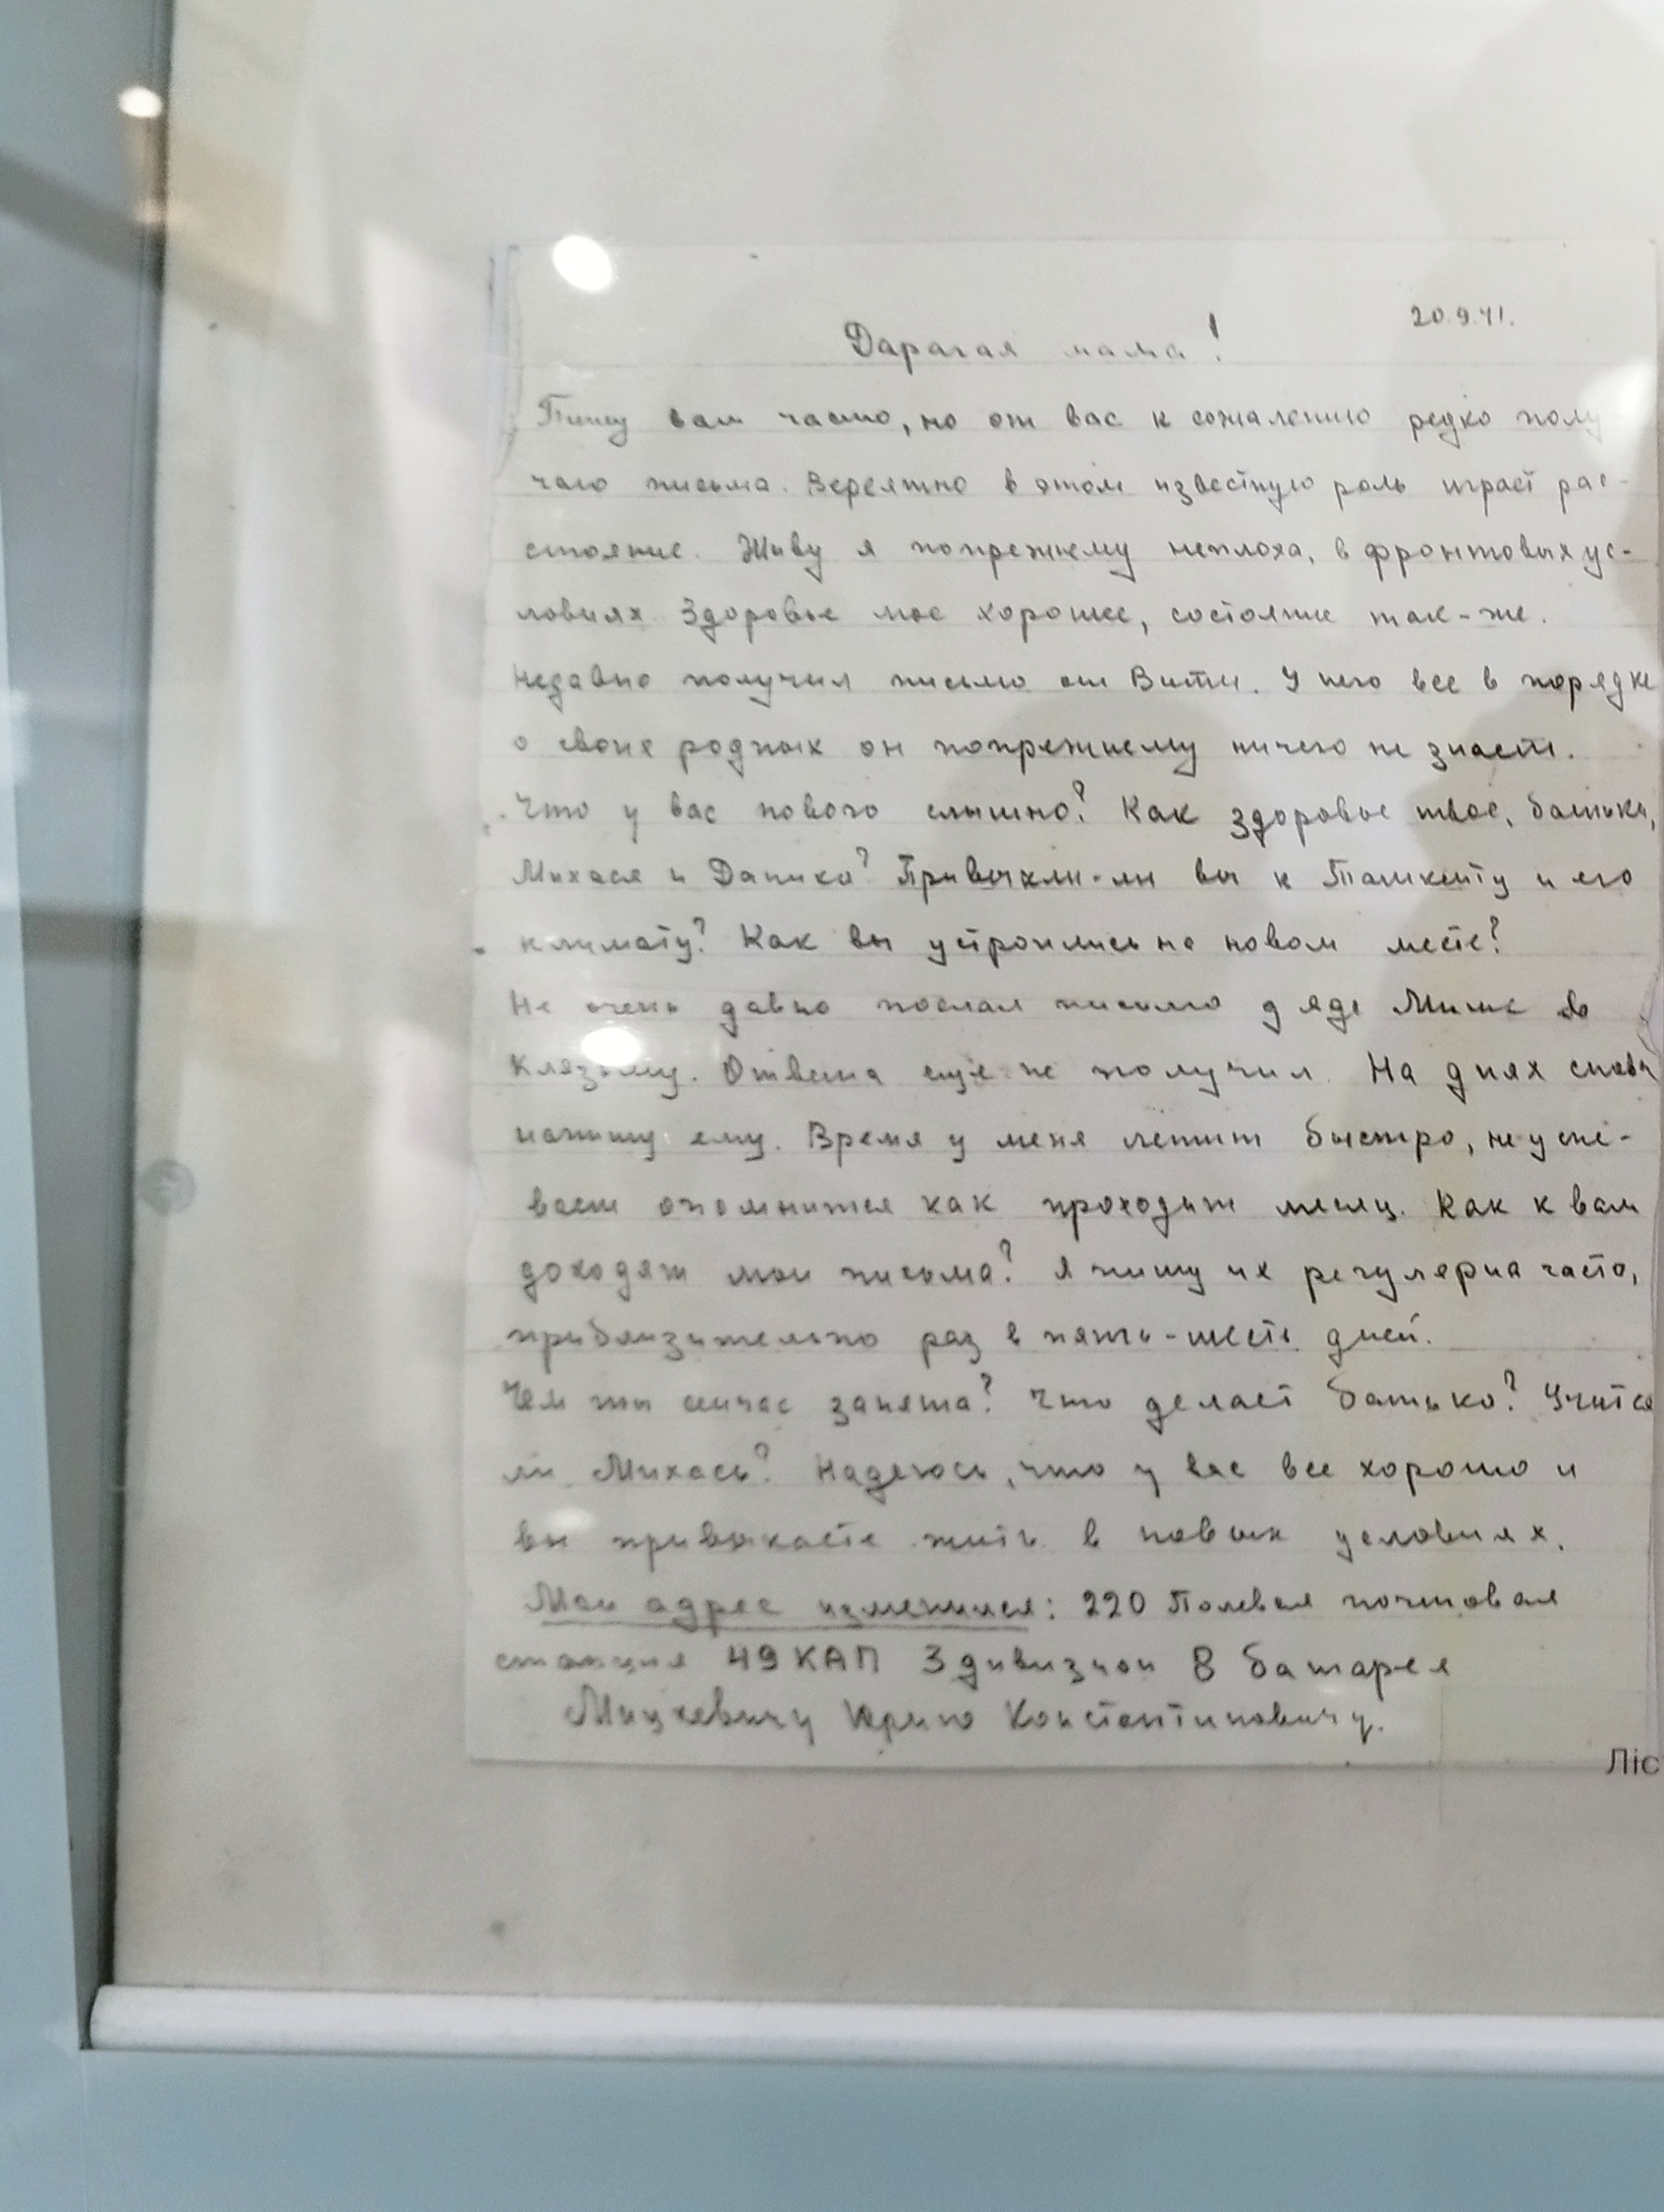 20.9.41.
Дарагая мама!
Пишу вам часто, но от вас к сожалению редко полу
чаю письма. Вероятно в этом известную роль играет рас-
стояние. Живу я попрежнему неплоха, в фронтовых ус-
ловиях. Здоровье мое хорошее, состояние так-же.
Недавно получил письмо от Вити. У него все в порядке
о своих родных он попрежнему ничего не знает.
Что у вас нового слышно? Как здоровье твое, батьки,
Михася и Даника? Привыкли-ли вы к Ташкенту и его
климату? Как вы устроились на новом месте?
Не очень давно послал письмо дяде Мише в
Клязьму. Ответа еще не получил. На днях снова
напишу ему. Время у меня летит быстро, не успе-
ваеш опомнится как проходит месяц. Как к вам
доходят мои письма? Я пишу их регулярна часто,
приблизительно раз в пять-шесть дней.
Чем ты сейчас занята? Что делает батько? Учится
ли Михась? Надеюсь, что у вас все хорошо и
вы привыкаете жить в новых условиях.
Мой адрес изменился: 220 Полевая почтовая
станция 49 КАП 3 дивизион 8 батарея
Мицкевичу Юрию Константиновичу.
Ліс